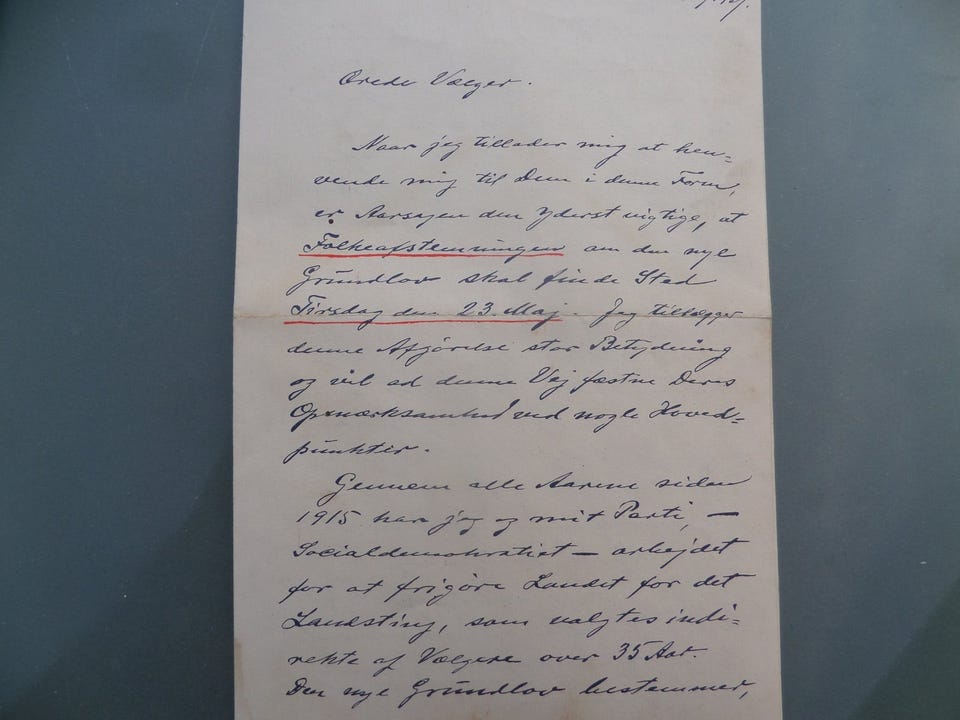 Ærede Vælger.
Naar jeg tillader mig at hen-
vende mig til Dem i denne Form,
er Aarsagen den yderst vigtige, at
Folkeafstemningen om den nye
Grundlov skal finde Sted
Tirsdag den 23. Maj. Jeg tillægger
denne Afgørelse stor Betydning
og vil ad denne Vej fæstne Deres
Opmærksomhed ved nogle Hoved-
punkter.
Gennem alle Aarene siden
1915 har jeg og mit Parti, —
Socialdemokratiet — arbejdet
for at frigøre Landet for det
Landsting, som valgtes indi-
rekte af Vælgere over 35 Aar.
Den nye Grundlov bestemmer,